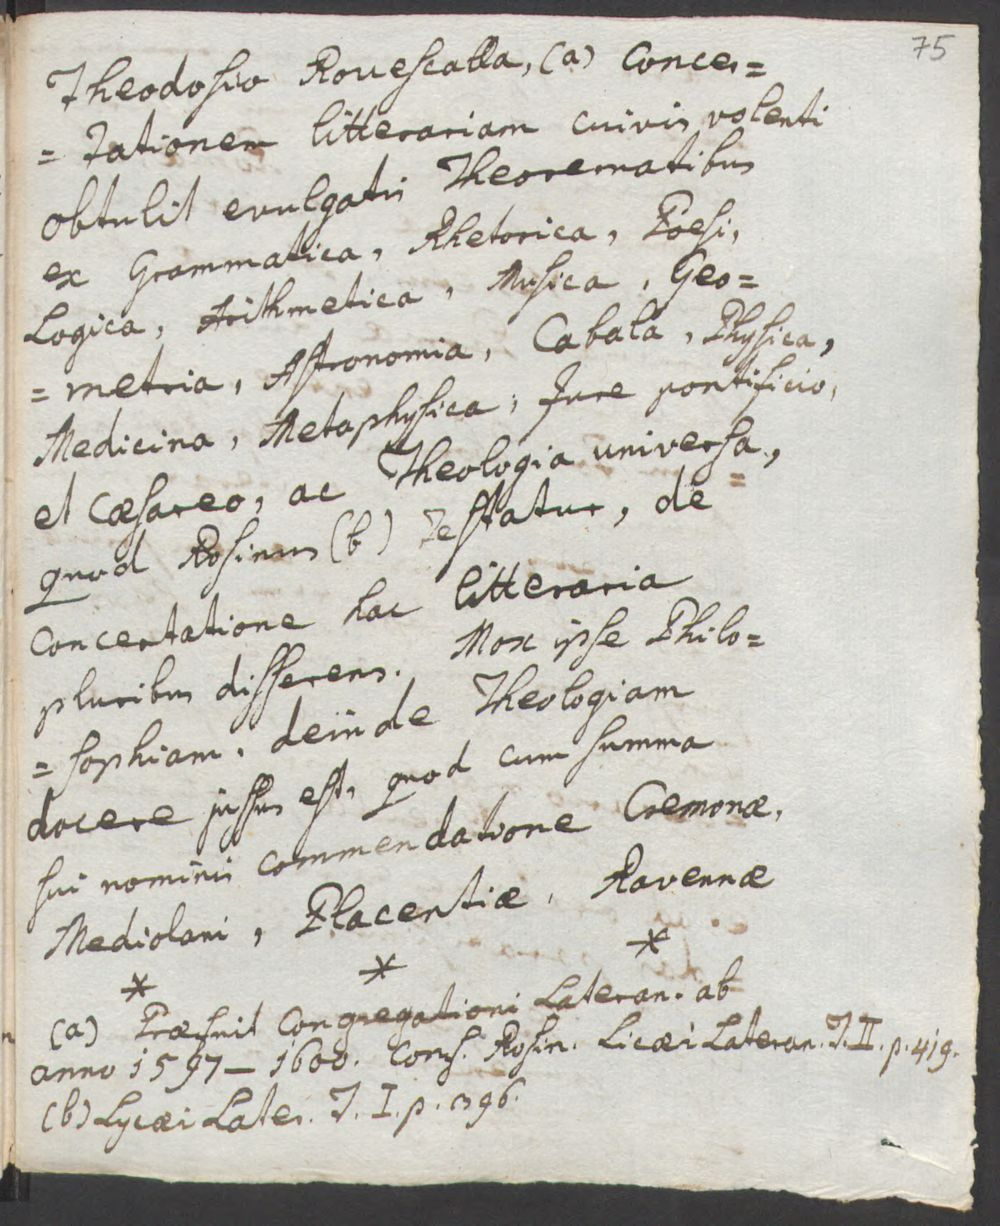 75
Theodosio Rouescalla, (a) Concer=
= tationem litterariam cuivis volenti
obtulit evulgatis Theorematibus
ex Grammatica, Rhetorica, Poesi,
Logica, Arithmetica, Musica, Geo=
= metria, Astronomia, Cabala, Physica,
Medicina, Metaphysica, Jure pontificio,
et cæsareo, ac Theologia universa,
quod Rosinus (b) testatur, de
concertatione hac litteraria
pluribus differens. Mox ipse Philo=
= sophiam, deinde Theologiam
docere jussus est, quod cum summa
sui nominis commendatione Cremonæ,
Mediolani, Placentiæ, Ravennæ
* * *
(a) Præfuit Congregationi Lateran. ab
anno 1597 — 1600. Conf. Rosin. Licæi Lateran. T. II. p. 419.
(b) Lycæi Later. T. I. p. 396.